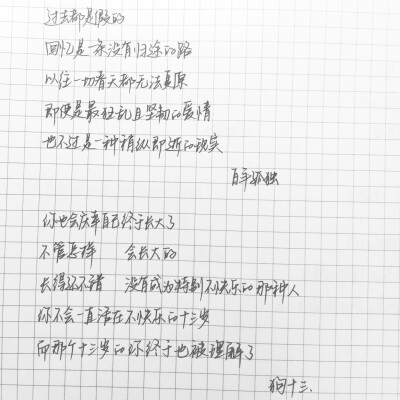 过去都是假的
回忆是一条没有归途的路
以往一切春天都无法复原
即便是最狂乱且坚韧的爱情
也不过是一种稍纵即逝的现实
百年孤独
你也会庆幸自己终于长大了
不管怎样 会长大的
长得还不错 没有成为特别不快乐的那种人
你不会一直活在不快乐的十三岁
而那个十三岁的你终于也被理解了
狗十三.